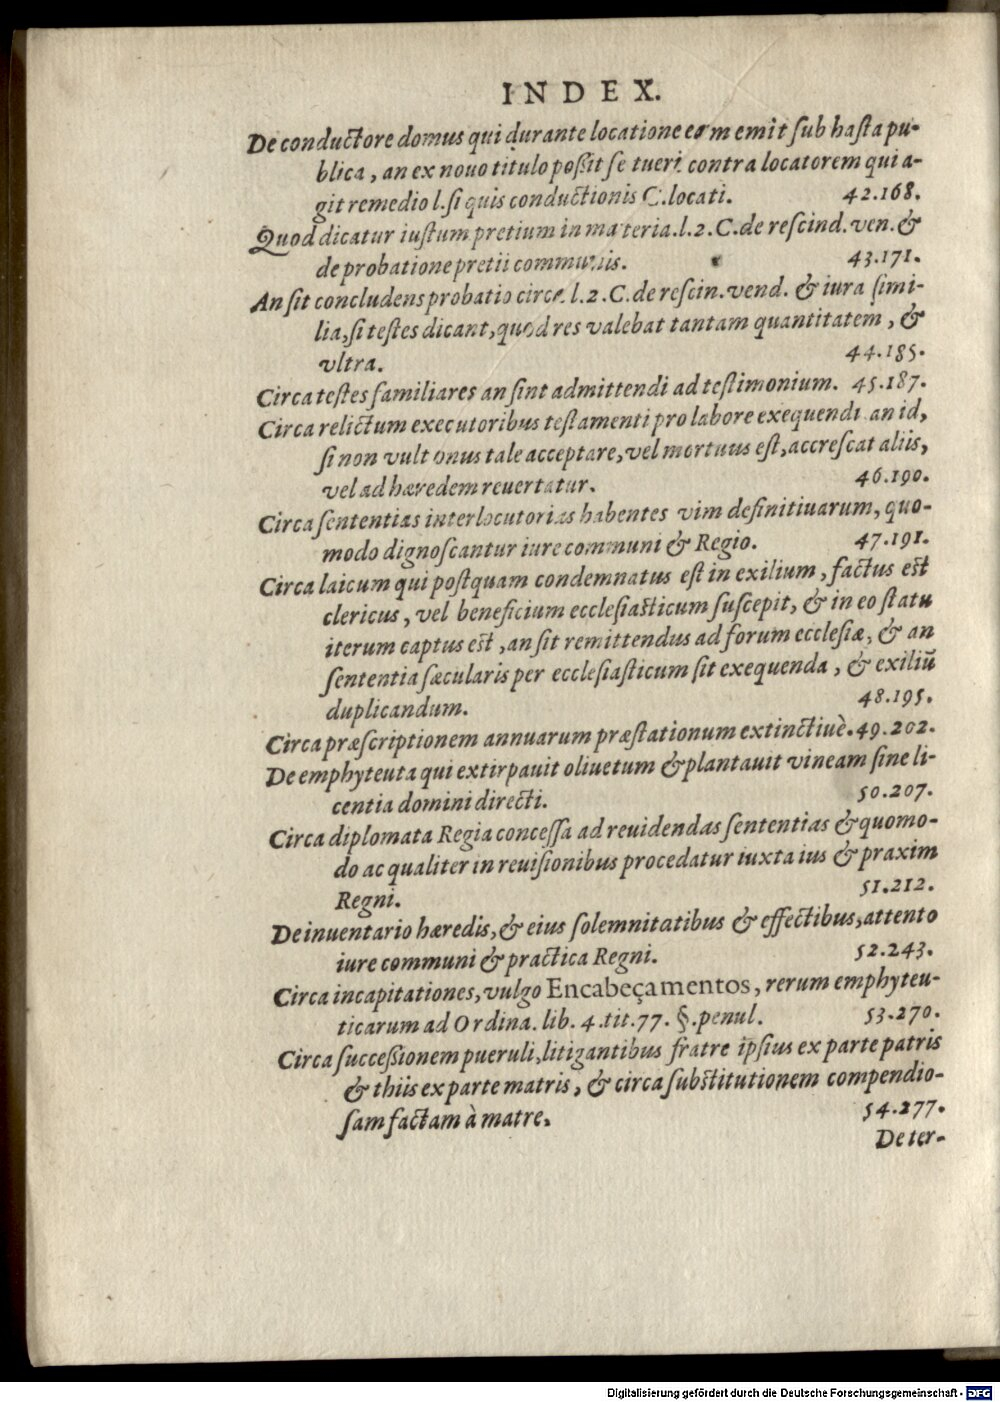 INDEX.
De conductore domus qui durante locatione eam emit sub hasta pu-
blica, an ex nouo titulo poßit se tueri contra locatorem qui a-
git remedio l. si quis conductionis C. locati. 42.168.
Quod dicatur iustum pretium in materia.l.2.C.de rescind. ven. &
de probatione pretii communis. 43.171.
An sit concludens probatio circa l.2.C.de rescin.vend. & iura simi-
lia, si testes dicant, quod res valebat tantam quantitatem, &
vltra. 44.185.
Circa testes familiares an sint admittendi ad testimonium. 45.187.
Circa relictum executoribus testamenti pro labore exequendi an id,
si non vult onus tale acceptare, vel mortuus est, accrescat aliis,
vel ad hæredem reuertatur. 46.190.
Circa sententias interlocutorias habentes vim definitiuarum, quo-
modo dignoscantur iure communi & Regio. 47.191.
Circa laicum qui postquam condemnatus est in exilium, factus est
clericus, vel beneficium ecclesiasticum suscepit, & in eo statu
iterum captus est, an sit remittendus ad forum ecclesiæ, & an
sententia sæcularis per ecclesiasticum sit exequenda, & exiliũ
duplicandum. 48.195.
Circa præscriptionem annuarum præstationum extinctiuè. 49.202.
De emphyteuta qui extirpauit oliuetum & plantauit vineam sine li-
centia domini directi. 50.207.
Circa diplomata Regia concessa ad reuidendas sententias & quomo-
do ac qualiter in reuisionibus procedatur iuxta ius & praxim
Regni. 51.212.
De inuentario hæredis, & eius solemnitatibus & effectibus, attento
iure communi & practica Regni. 52.243.
Circa incapitationes, vulgo Encabeçamentos, rerum emphyteu-
ticarum ad Ordina. lib. 4.tit.77. §.penul. 53.270.
Circa succeßionem pueruli, litigantibus fratre ipsius ex parte patris
& thiis ex parte matris, & circa substitutionem compendio-
sam factam à matre. 54.277.
De ter-
Digitalisierung gefördert durch die Deutsche Forschungsgemeinschaft - DFG